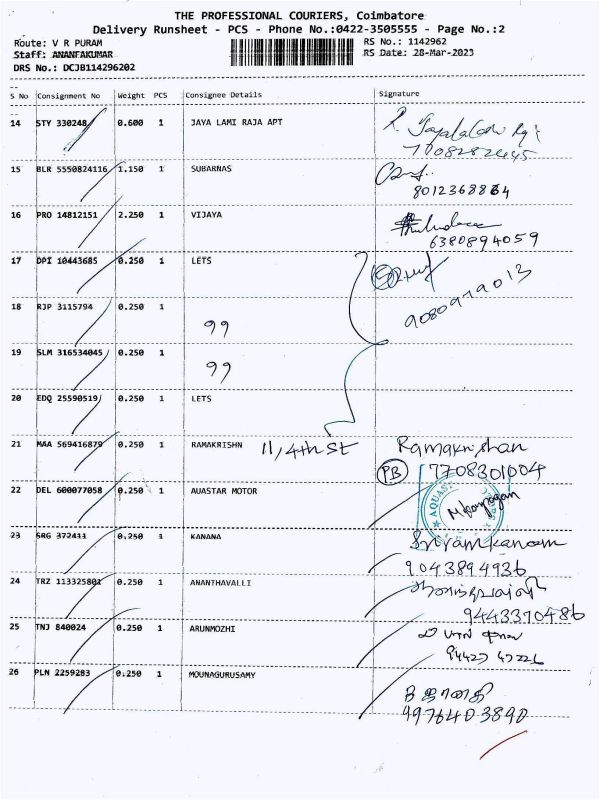 THE PROFESSIONAL COURIERS, Coimbatore
Delivery Runsheet - PCS - Phone No.:0422-3505555 - Page No.:2
Route: V R PURAM
RS No.: 1142962
Staff: ANANFAKUMAR
RS Date: 28-Mar-2023
DRS No.: DCJB114296202
S No Consignment No Weight PCS Consignee Details Signature
14 STY 330248 0.600 1 JAYA LAMI RAJA APT
7708282445
15 BLR 5550824116 1.150 1 SUBARNAS
8012368864
16 PRO 14812151 2.250 1 VIJAYA
6380894059
17 DPI 10443685 0.250 1 LETS
9080979013
18 RJP 3115794 0.250 1
99
19 SLM 316534045 0.250 1
99
20 EDQ 25590519 0.250 1 LETS
21 MAA 569416879 0.250 1 RAMAKRISHN 11/4th St Ramakrishan
PB 7708301004
22 DEL 600077058 0.250 1 AUASTAR MOTOR
23 SRG 372411 0.250 1 KANANA Sriramkanam
9043894936
24 TRZ 113325801 0.250 1 ANANTHAVALLI
9443370486
25 TNJ 840024 0.250 1 ARUNMOZHI
94427 47226
26 PLN 2259283 0.250 1 MOUNAGURUSAMY
9976403890